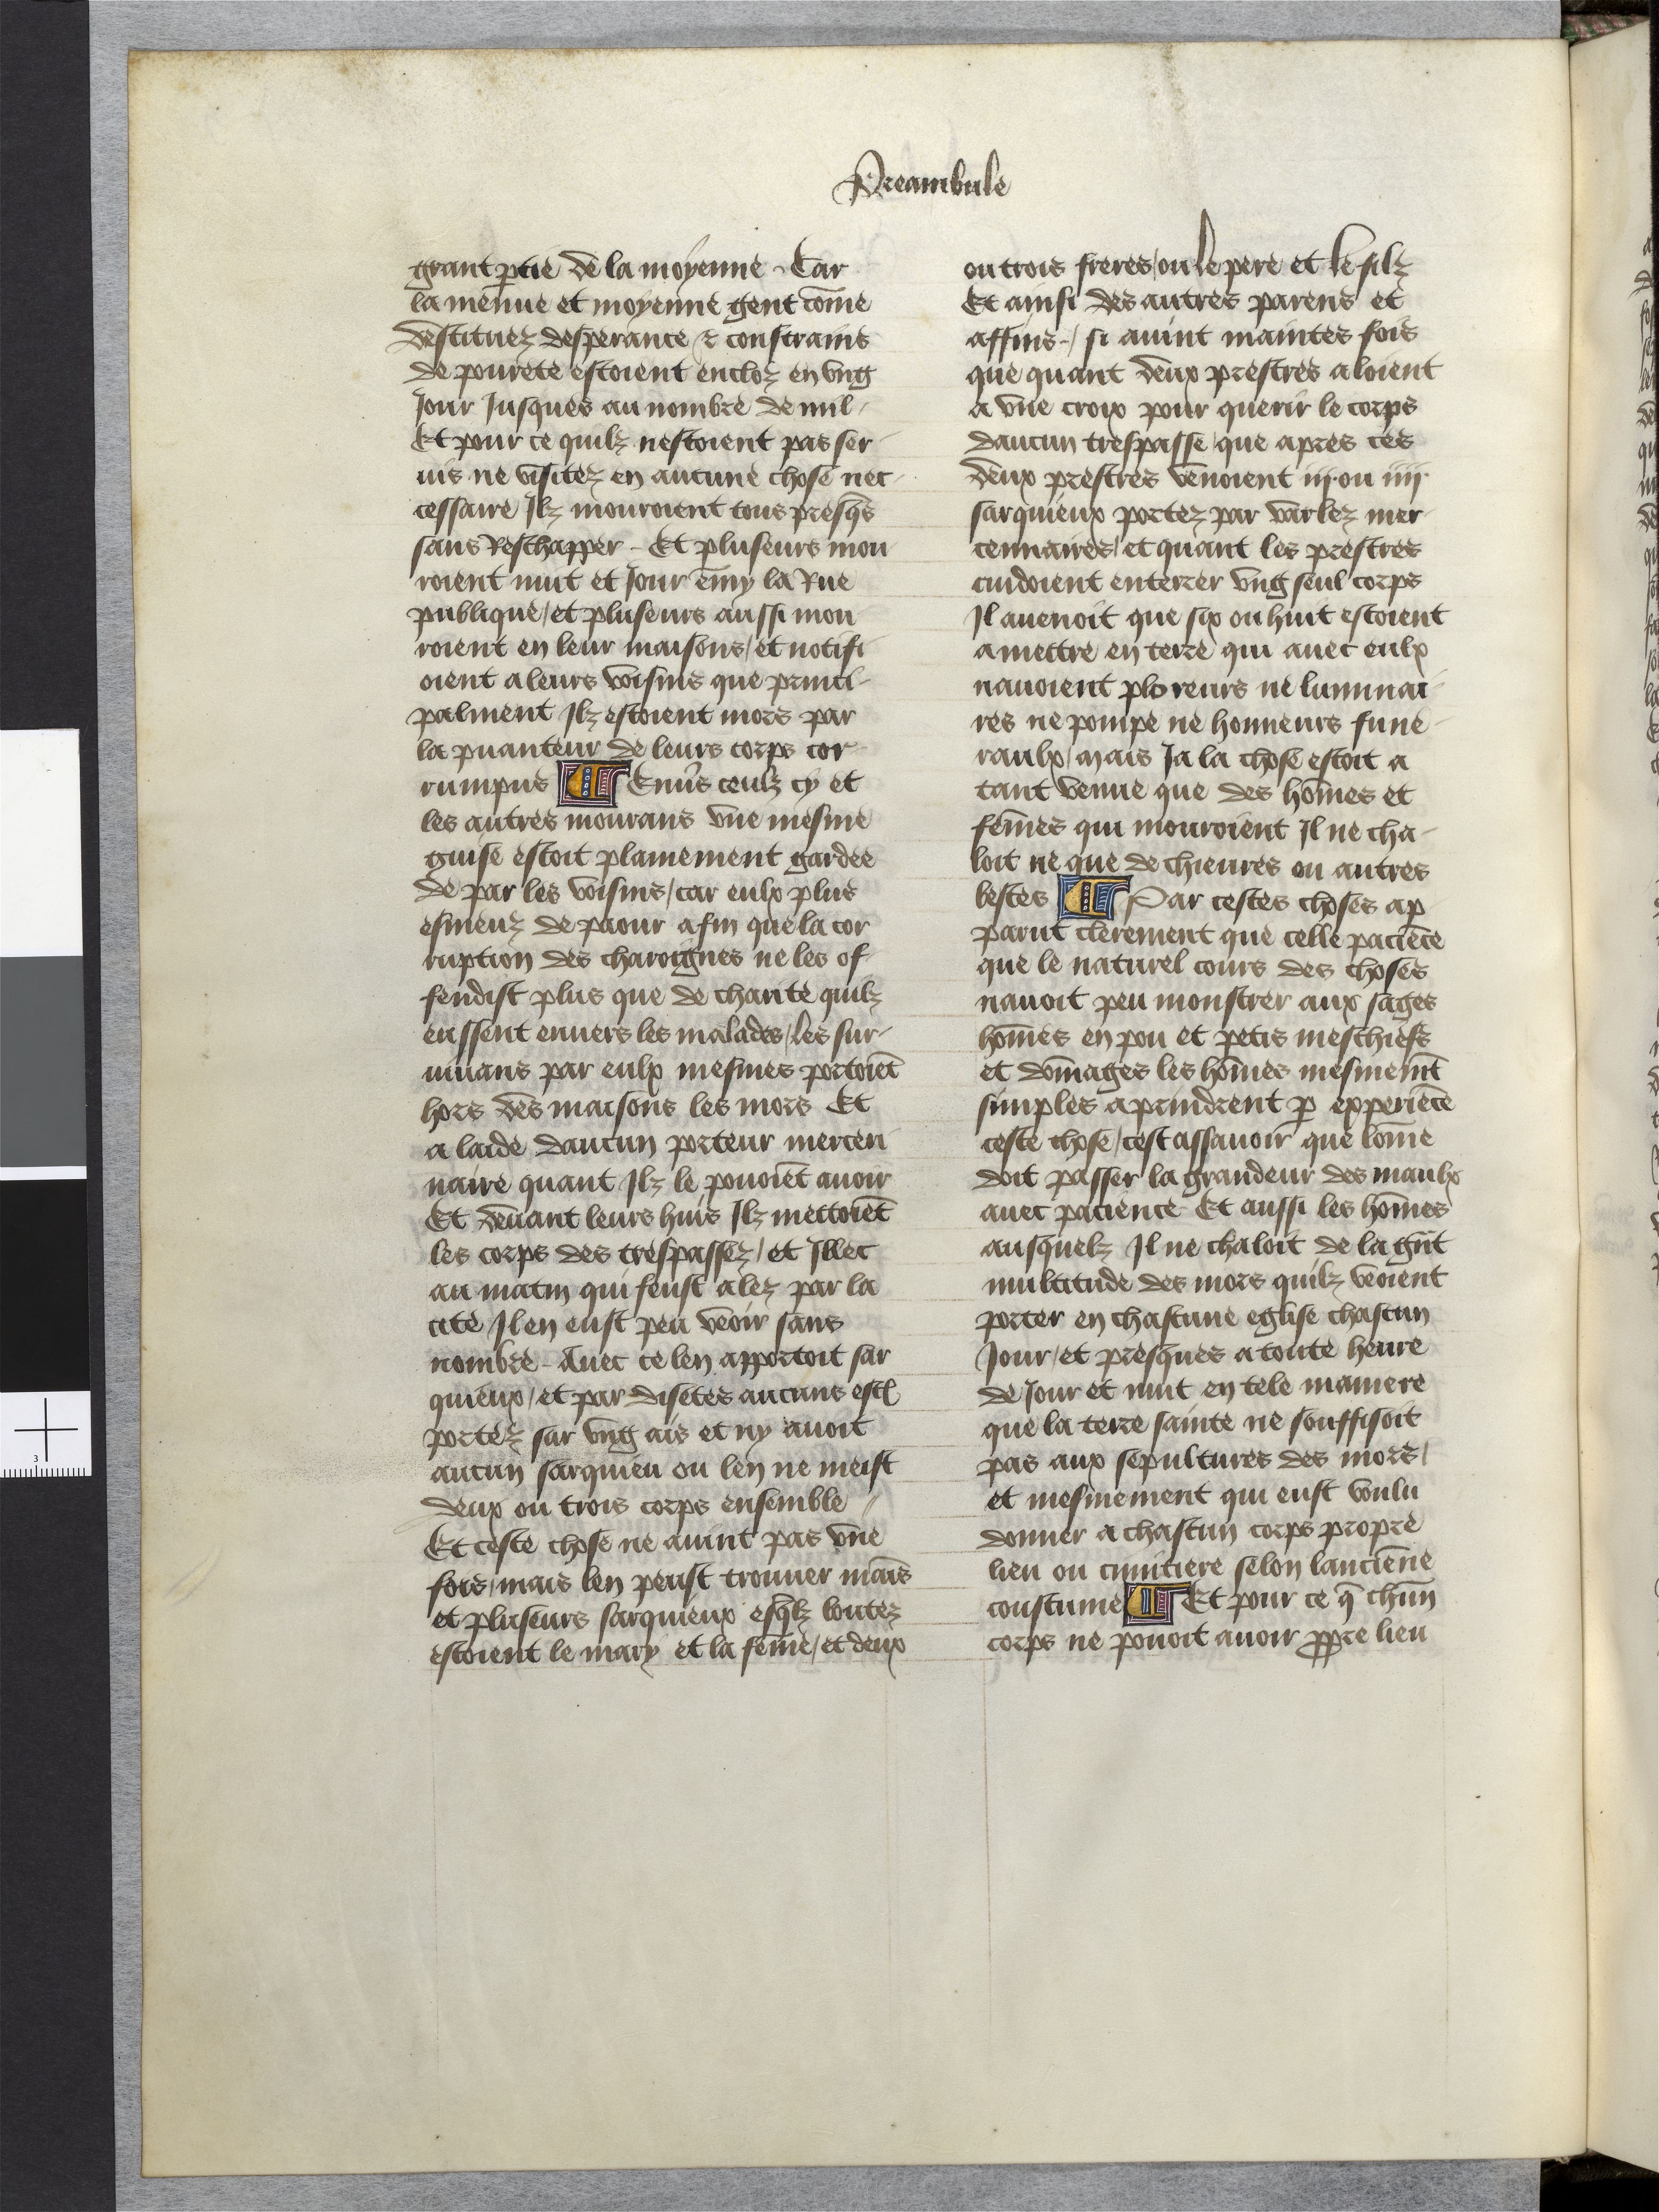 Preambule
grant p̲tie de la moyenne . Car
la menue et moyenne gent cōme
destituez desperance ⁊ constrains
de pourete estoient encloz en vng
Jour Jusques au nombre de mil /
Et pour ce quilz nestoient pas ser
uis ne visitez en aucune chose nec
cessaire Ilz mouroient tous presq̄s
sans Reschapper . Et pluseurs mou
roient nuit et Jour ēmy la Rue
publique / et pluseurs aussi mou
roient en leur maisons / et notifi
oient a leurs voisins que princi
palment Ilz estoient mors par
la puanteur de leurs corps cor
rumpus ¶ Enūs ceulz cy et
les autres mourans vne mesme
guise estoit plainement gardee
de par les voisins / car eulx plus
esmeuz de paour afin que la cor
ruption des charoignes ne les of
fendist plus que de charite quilz
eussent enuers les malades / les sur
uiuans par eulx mesmes portoiēt
hors des maisons les mors Et
a laide daucun porteur merceri
naire quant Ilz le pouoiēt auoir
Et deuant leurs huis Ilz mettoiēt
les corps des trespassez / et Illec
au matin qui feust alez par la
cite Il en eust peu veoir sans
nombre . Auec ce len apportoit sar
quieux / et par disetes aucuns estꝭ
portez sur vng ais et ny auoit
aucun sarquieu ou len ne meist
deux ou trois corps ensemble //
Et ceste chose ne auint pas vne
fois / mais len peust trouuer māīs
et pluseurs sarquieux esq̄lz boutez
estoient le mary et la fēme / et deux
ou trois freres / ou le pere et le filz
Et ainsi des autres parens et
affins . / si auint maintes fois
que quant deux prestres aloient
a vne croix pour querir le corps
daucun trespasse / que apres ces
deux prestres venoient iij. ou iiij.
sarquieux portez par varlez mer
cennaires / et quant les prestres
cuidoient enterrer vng seul corps
Il auenoit que six ou huit estoient
a mettre en terre qui auec eulx
nauoient ploreurs ne luminai
res ne pompe ne honneurs fune
raulx / mais Ja la chose estoit a
tant venue que des hōmes et
fēmes qui mouroient Il ne cha
loit ne que de chieures ou autres
bestes ¶ Par cestes choses ap
parut clerement que celle paciēce
que le naturel cours des choses
nauoit peu monstrer aux sages
hōmes en pou et petis meschiefs
et dōmages les hōmes mesmemt̄
simples aprindrent p̲ experiēce
ceste chose / cest assauoir que lōme
doit passer la grandeur des maulx
auec pacience Et aussi les hōmes
ausquelz Il ne chaloit de la gn̄t
multitude des mors quilz veoient
porter en chascune eglise chascun
Jour / et presques a toute heure
de Jour et nuit en tele maniere
que la terre sainte ne souffisoit
pas aux sepultures des mors /
et mesmement qui eust voulu
donner a chascun corps propre
lieu ou cimitiere selon lanciēne
coustume ¶ Et pour ce q̄ chūn
corps ne pouoit auoir p̲p̲re lieu